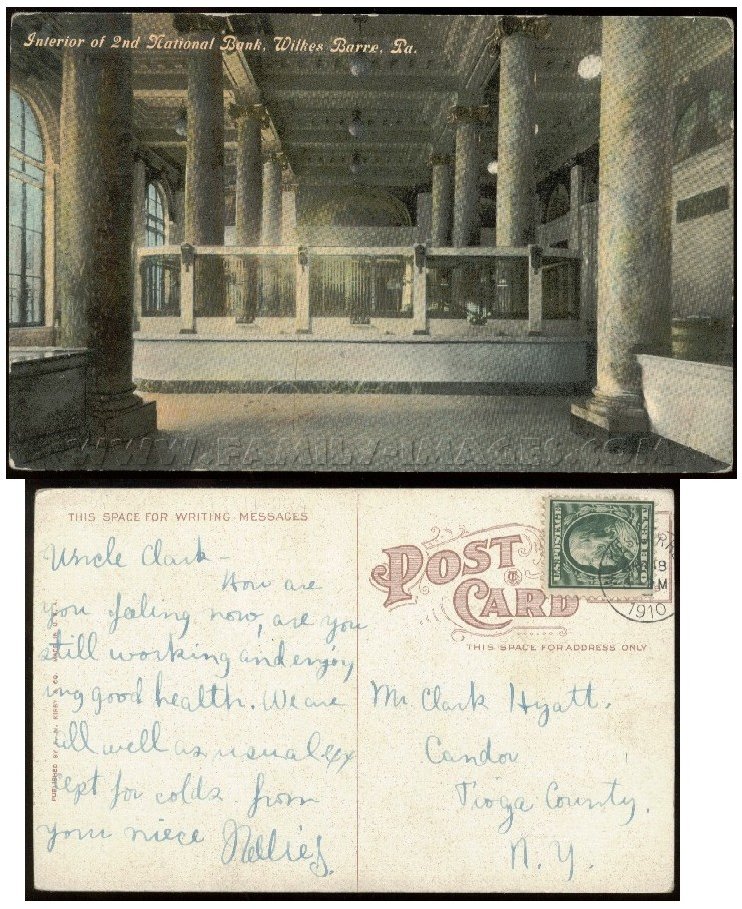 Interior of 2nd National Bank, Wilkes Barre, Pa.
WWW.FAMILY-IMAGES.COM
THIS SPACE FOR WRITING MESSAGES
Uncle Clark –
How are
you feeling now, are you
still working and enjoy
ing good health. We are
all well as usual ex
sept for colds from
your niece Nellie
PUBLISHED BY KIRBY CO.
POST CARD
U.S. POSTAGE
ONE CENT
M
1910
THIS SPACE FOR ADDRESS ONLY
Mr. Clark Hyatt.
Candor
Tioga County,
N.Y.